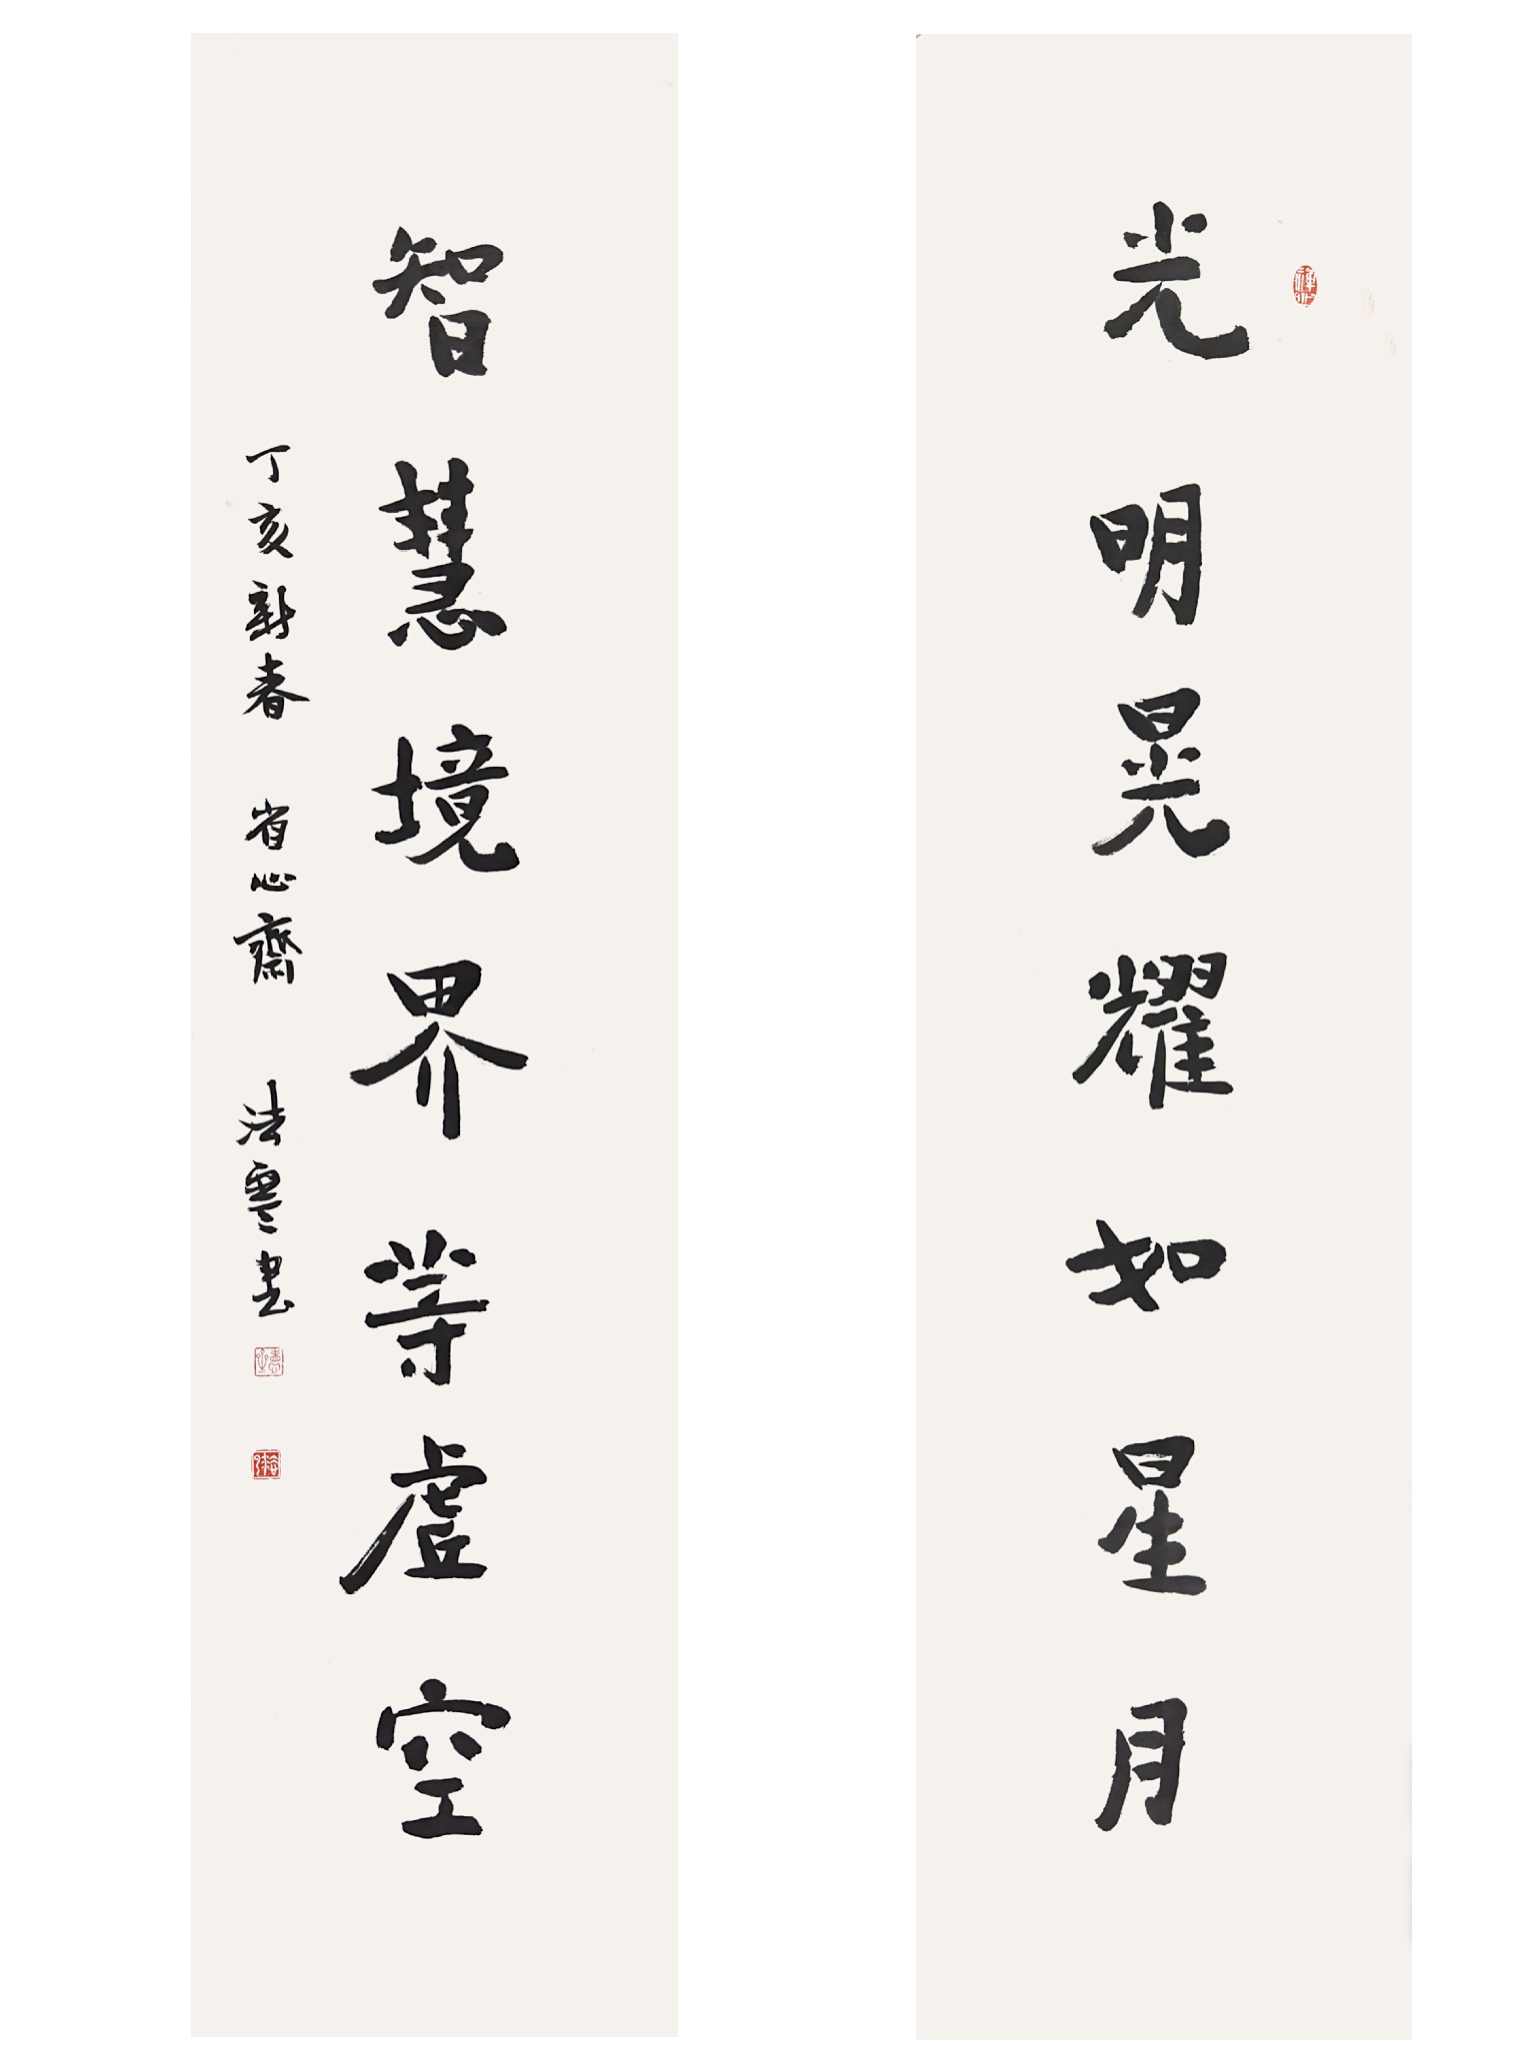 光明晃耀如星月
智慧境界等虚空
丁亥新春 省心齋 法雲書